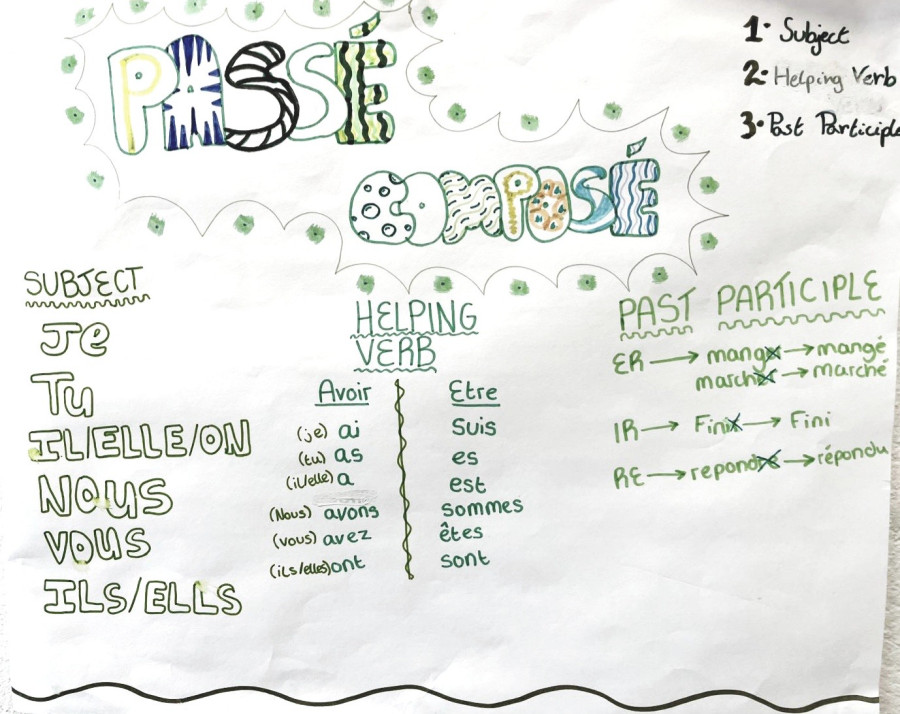 PASSÉ
COMPOSÉ
1. Subject
2. Helping Verb
3. Past Participle
SUBJECT
Je
Tu
IL/ELLE/ON
NOUS
VOUS
ILS/ELLS
HELPING
VERB
Avoir Etre
(je) ai suis
(tu) as es
(il/elle) a est
(Nous) avons sommes
(vous) avez êtes
(ils/elles) ont sont
PAST PARTICIPLE
ER → manger → mangé
marcher → marché
IR → Finir → Fini
RE → repondre → répondu